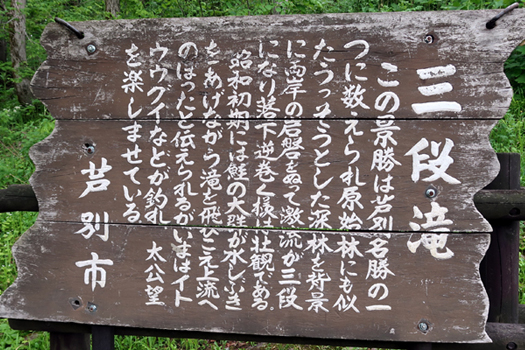 三段滝
この景勝は芦別名勝の一
つに数えられ原始林にも似
たうっそうとした深林を背景
に両岸の岩盤とあって激流が三段
になり落下逆巻く様は壮観である。
昭和初期には鮭の大群が水しぶき
をあげながら滝を飛びこえ上流へ
のぼったと伝えられるがいまはイト
ウウグイなどが釣れ太公望
を楽しませている
芦別市